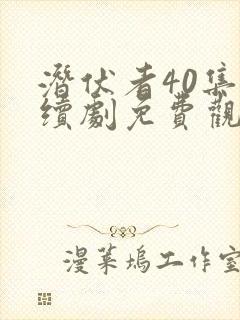 潛伏者40集
續劇免費觀
漫菓塢工作室